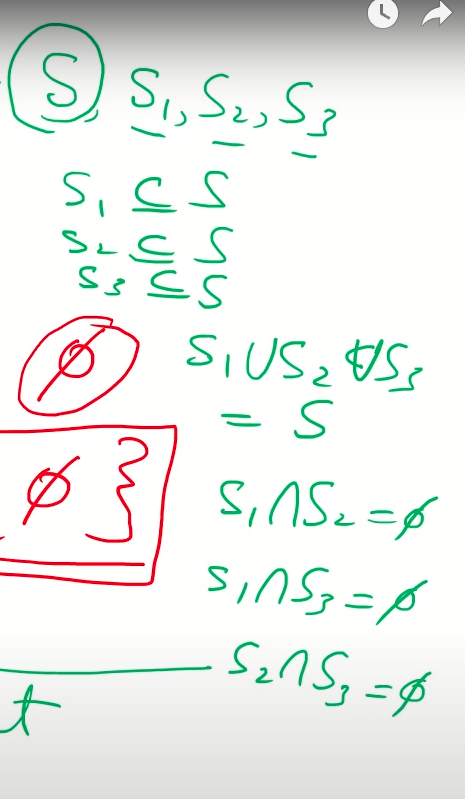 S S₁, S₂, S₃
S₁ ⊆ S
S₂ ⊆ S
S₃ ⊆ S
∅
S₁ ∪ S₂ ∪ S₃
= S
∅ }
S₁ ∩ S₂ = ∅
S₁ ∩ S₃ = ∅
S₂ ∩ S₃ = ∅
t